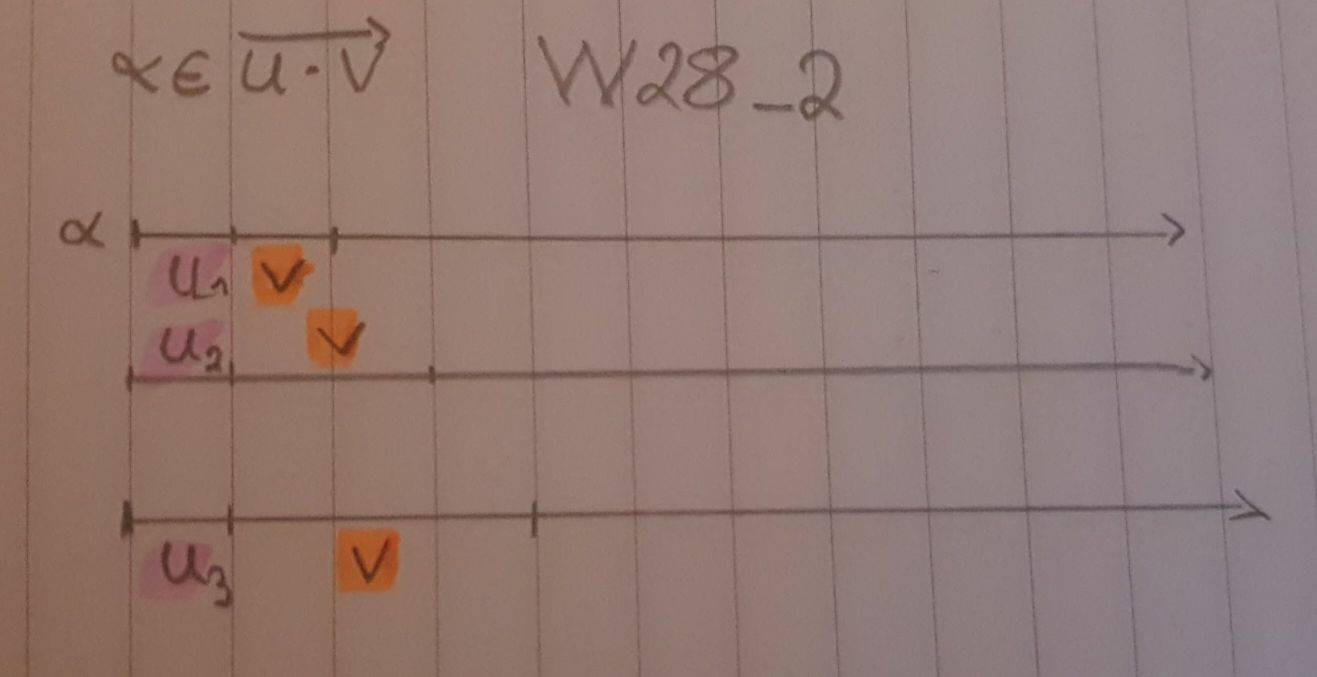 α ∈ u · v W28_2
α
u₁ v
u₂ v
u₃ v